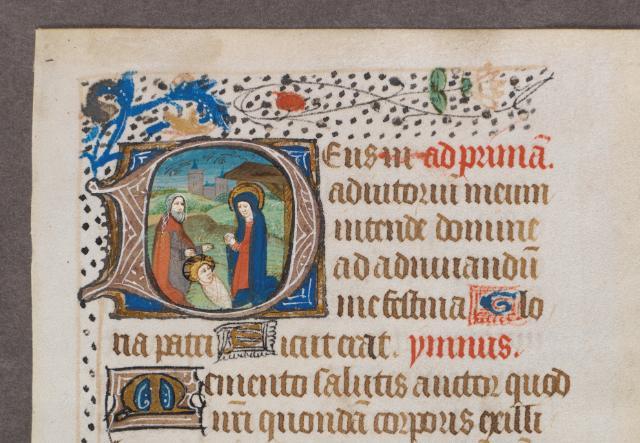 Deus in ad primā.
adiutoriū meum
intende domine
ad adiuuandū
me festina Glo
ria patri Sicut erat. ymnus.
Memento salutis auctor quod
nr̄i quondā corporis exilli